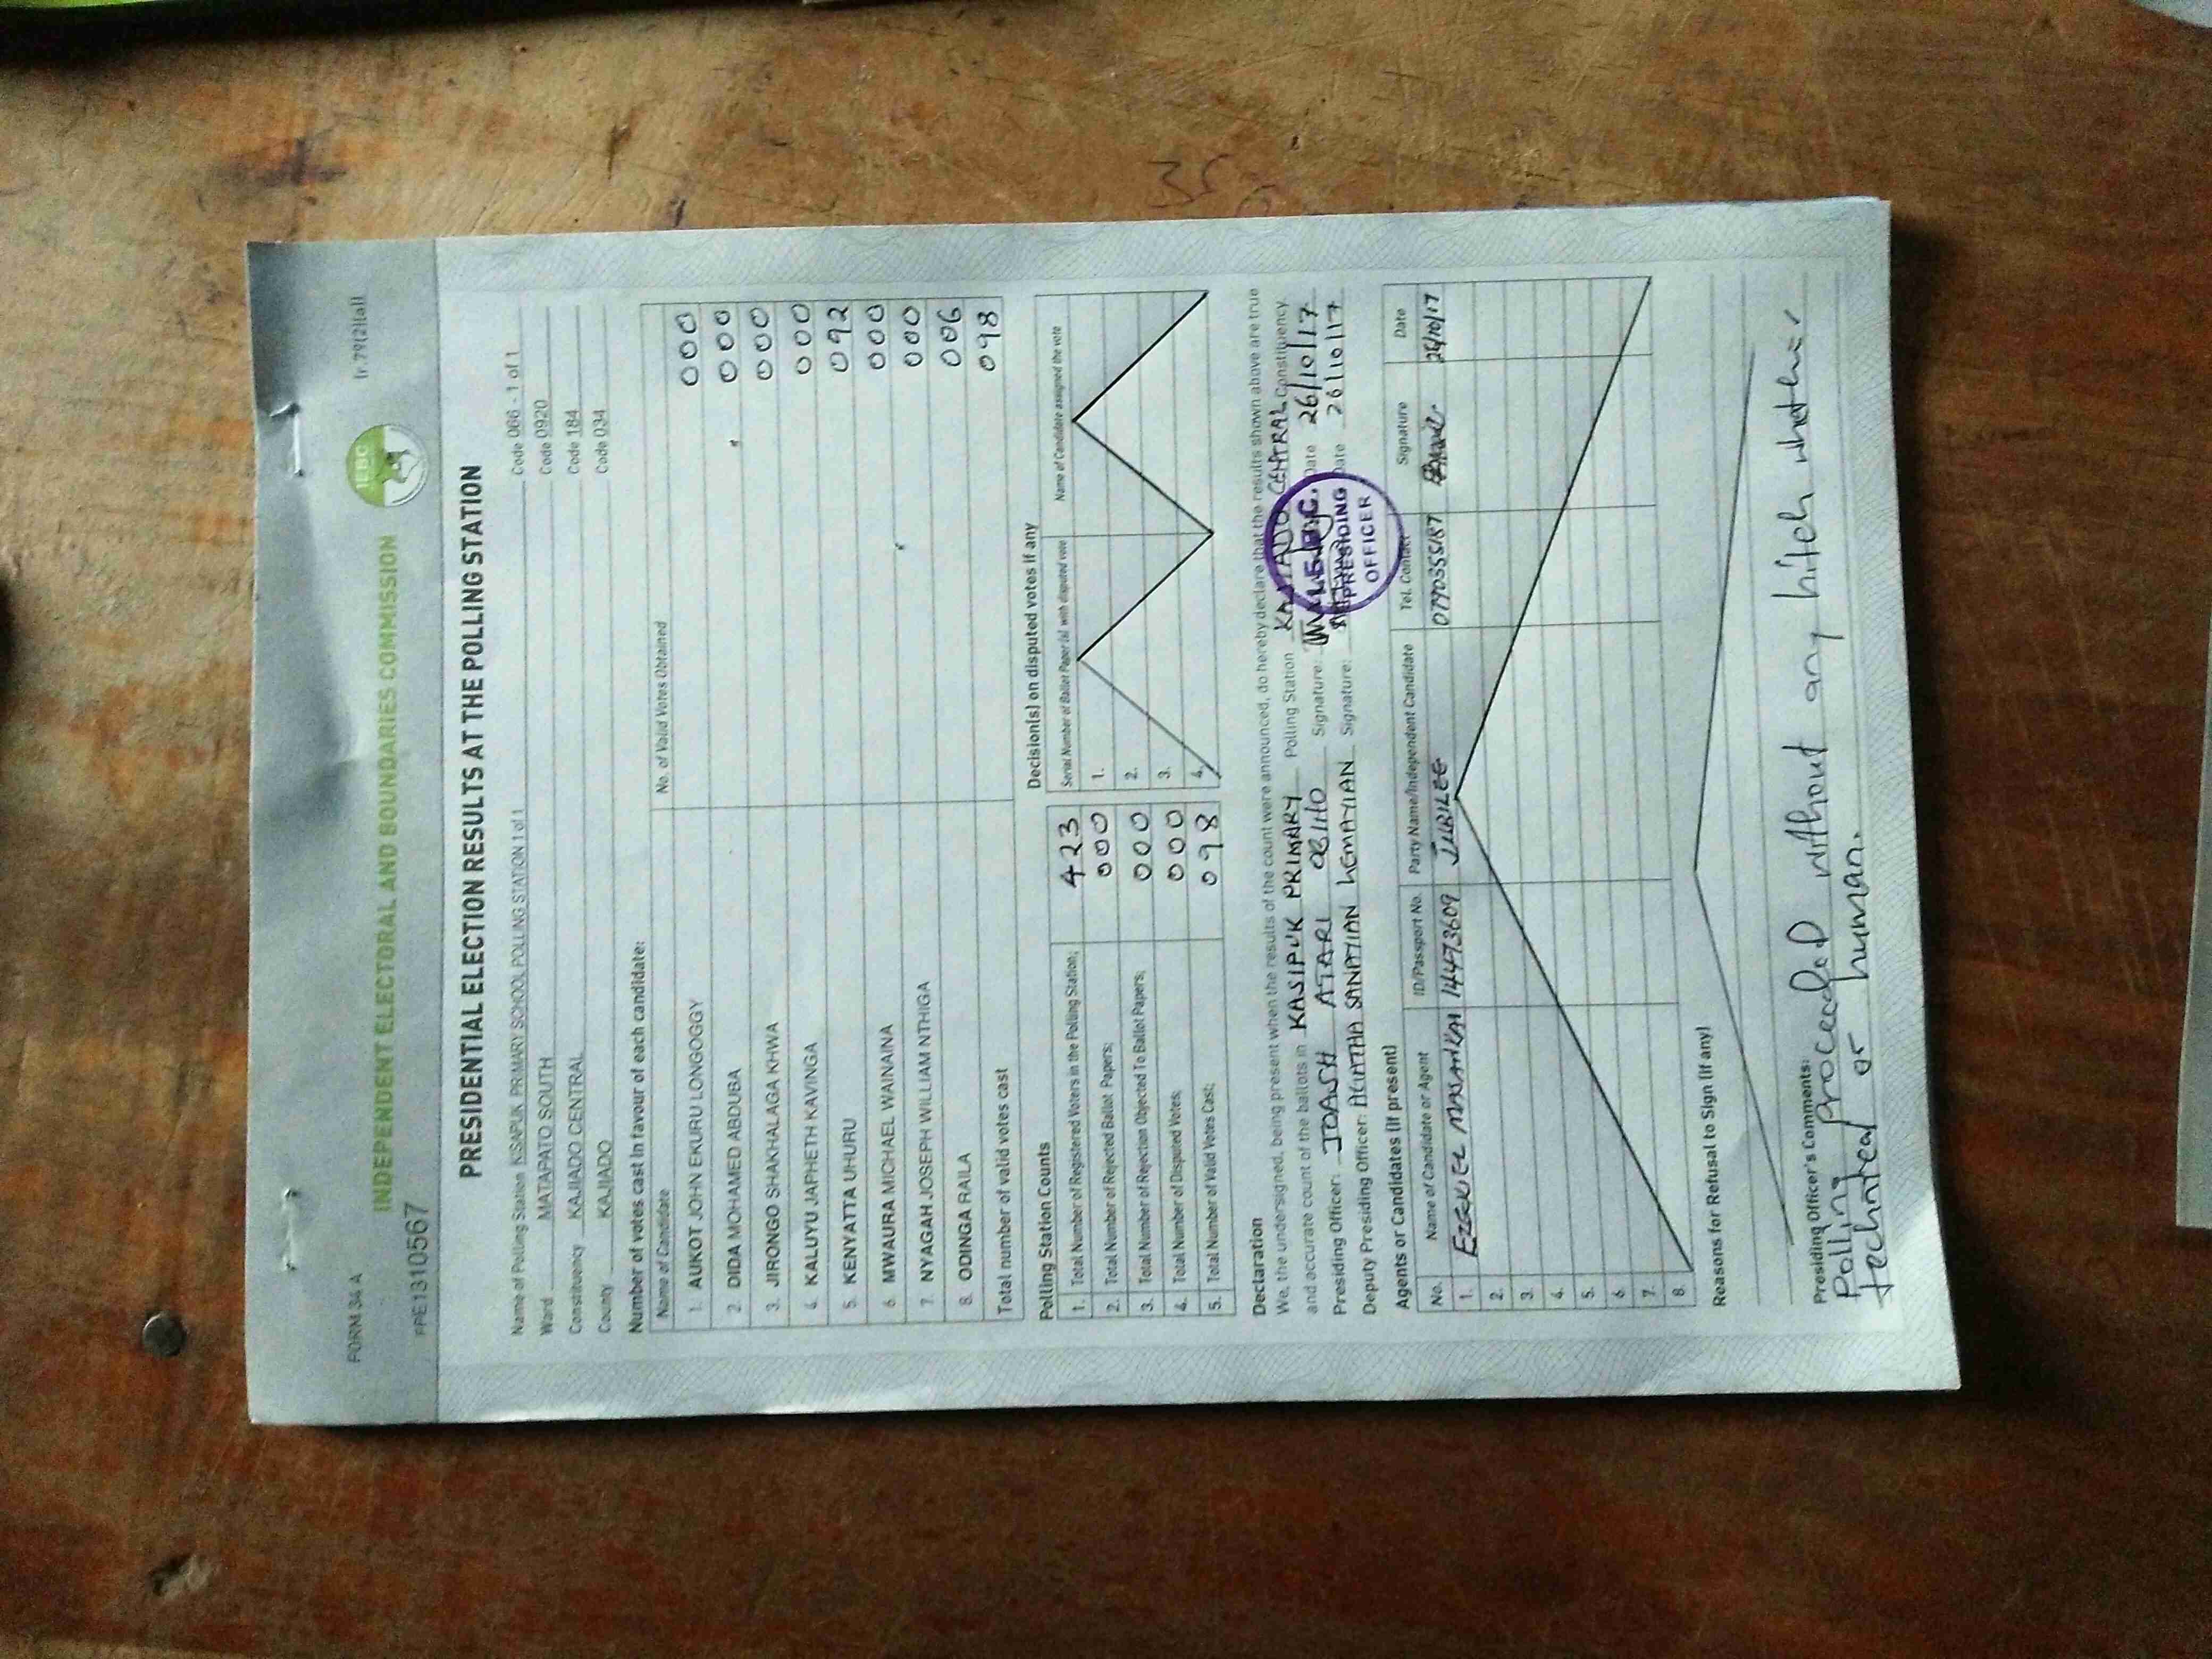 FORM 34 A
(r.79(2)(a))
IEBC
INDEPENDENT ELECTORAL AND BOUNDARIES COMMISSION
PPE1310567
PRESIDENTIAL ELECTION RESULTS AT THE POLLING STATION
Name of Polling Station KSAPUK PRIMARY SCHOOL POLLING STATION 1 of 1 Code 066 - 1 of 1
Ward MATAPATO SOUTH Code 0920
Constituency KAJIADO CENTRAL Code 184
County KAJIADO Code 034
Number of votes cast in favour of each candidate:
Name of Candidate No. of Valid Votes Obtained
1. AUKOT JOHN EKURU LONGOGGY 000
2. DIDA MOHAMED ABDUBA 000
3. JIRONGO SHAKHALAGA KHWA 000
4. KALUYU JAPHETH KAVINGA 000
5. KENYATTA UHURU 092
6. MWAURA MICHAEL WAINAINA 000
7. NYAGAH JOSEPH WILLIAM NTHIGA 000
8. ODINGA RAILA 006
Total number of valid votes cast 098
Polling Station Counts
1. Total Number of Registered Voters in the Polling Station; 423
2. Total Number of Rejected Ballot Papers; 000
3. Total Number of Rejection Objected To Ballot Papers; 000
4. Total Number of Disputed Votes; 000
5. Total Number of Valid Votes Cast; 098
Decision(s) on disputed votes if any
Serial Number of Ballot Paper (s) with disputed vote Name of Candidate assigned the vote
1.
2.
3.
4.
Declaration
We, the undersigned, being present when the results of the count were announced, do hereby declare that the results shown above are true
and accurate count of the ballots in KASIPUK PRIMARY Polling Station KAJIADO CENTRAL Constituency
Presiding Officer: JOASH ATARI OBIHO Signature: Date 26/10/17
Deputy Presiding Officer: AGATHA SANATIAN LEMAYIAN Signature: Date 26/10/17
PRESIDING
OFFICER
Agents or Candidates (if present)
No. Name of Candidate or Agent ID/Passport No. Party Name/Independent Candidate Tel. Contact Signature Date
1. EZEKIEL 14473609 JUBILEE 0790355187 26/10/17
2.
3.
4.
5.
6.
7.
8.
Reasons for Refusal to Sign (if any)
Presiding Officer's Comments:
Polling proceeded without any hitch whether
technical or human.
35